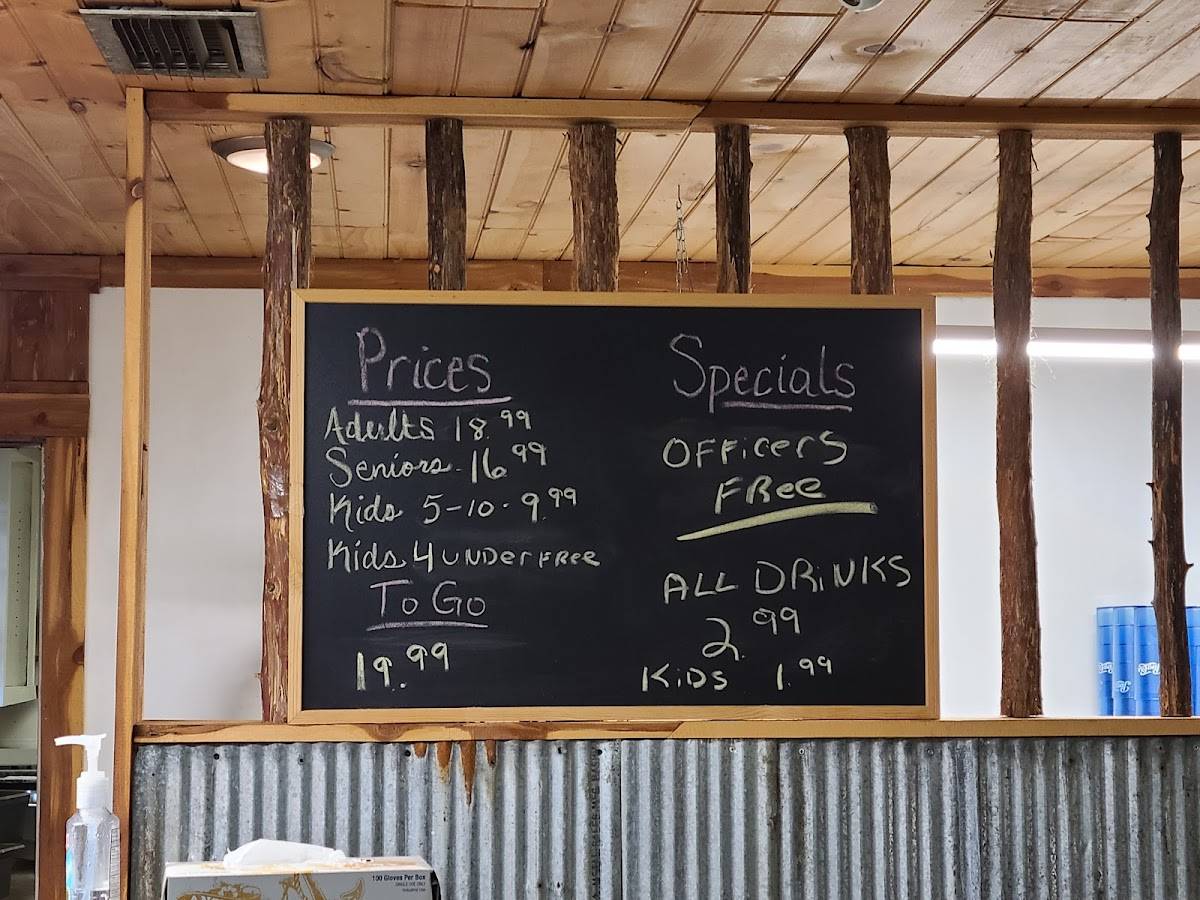 Prices
Adults 18.99
Seniors-16.99
Kids 5-10-9.99
Kids 4 UNDER FREE
To Go
19.99
Specials
OFFicerS
FRee
ALL DRiNKS
2.99
KiDS 1.99
100 Gloves Per Box